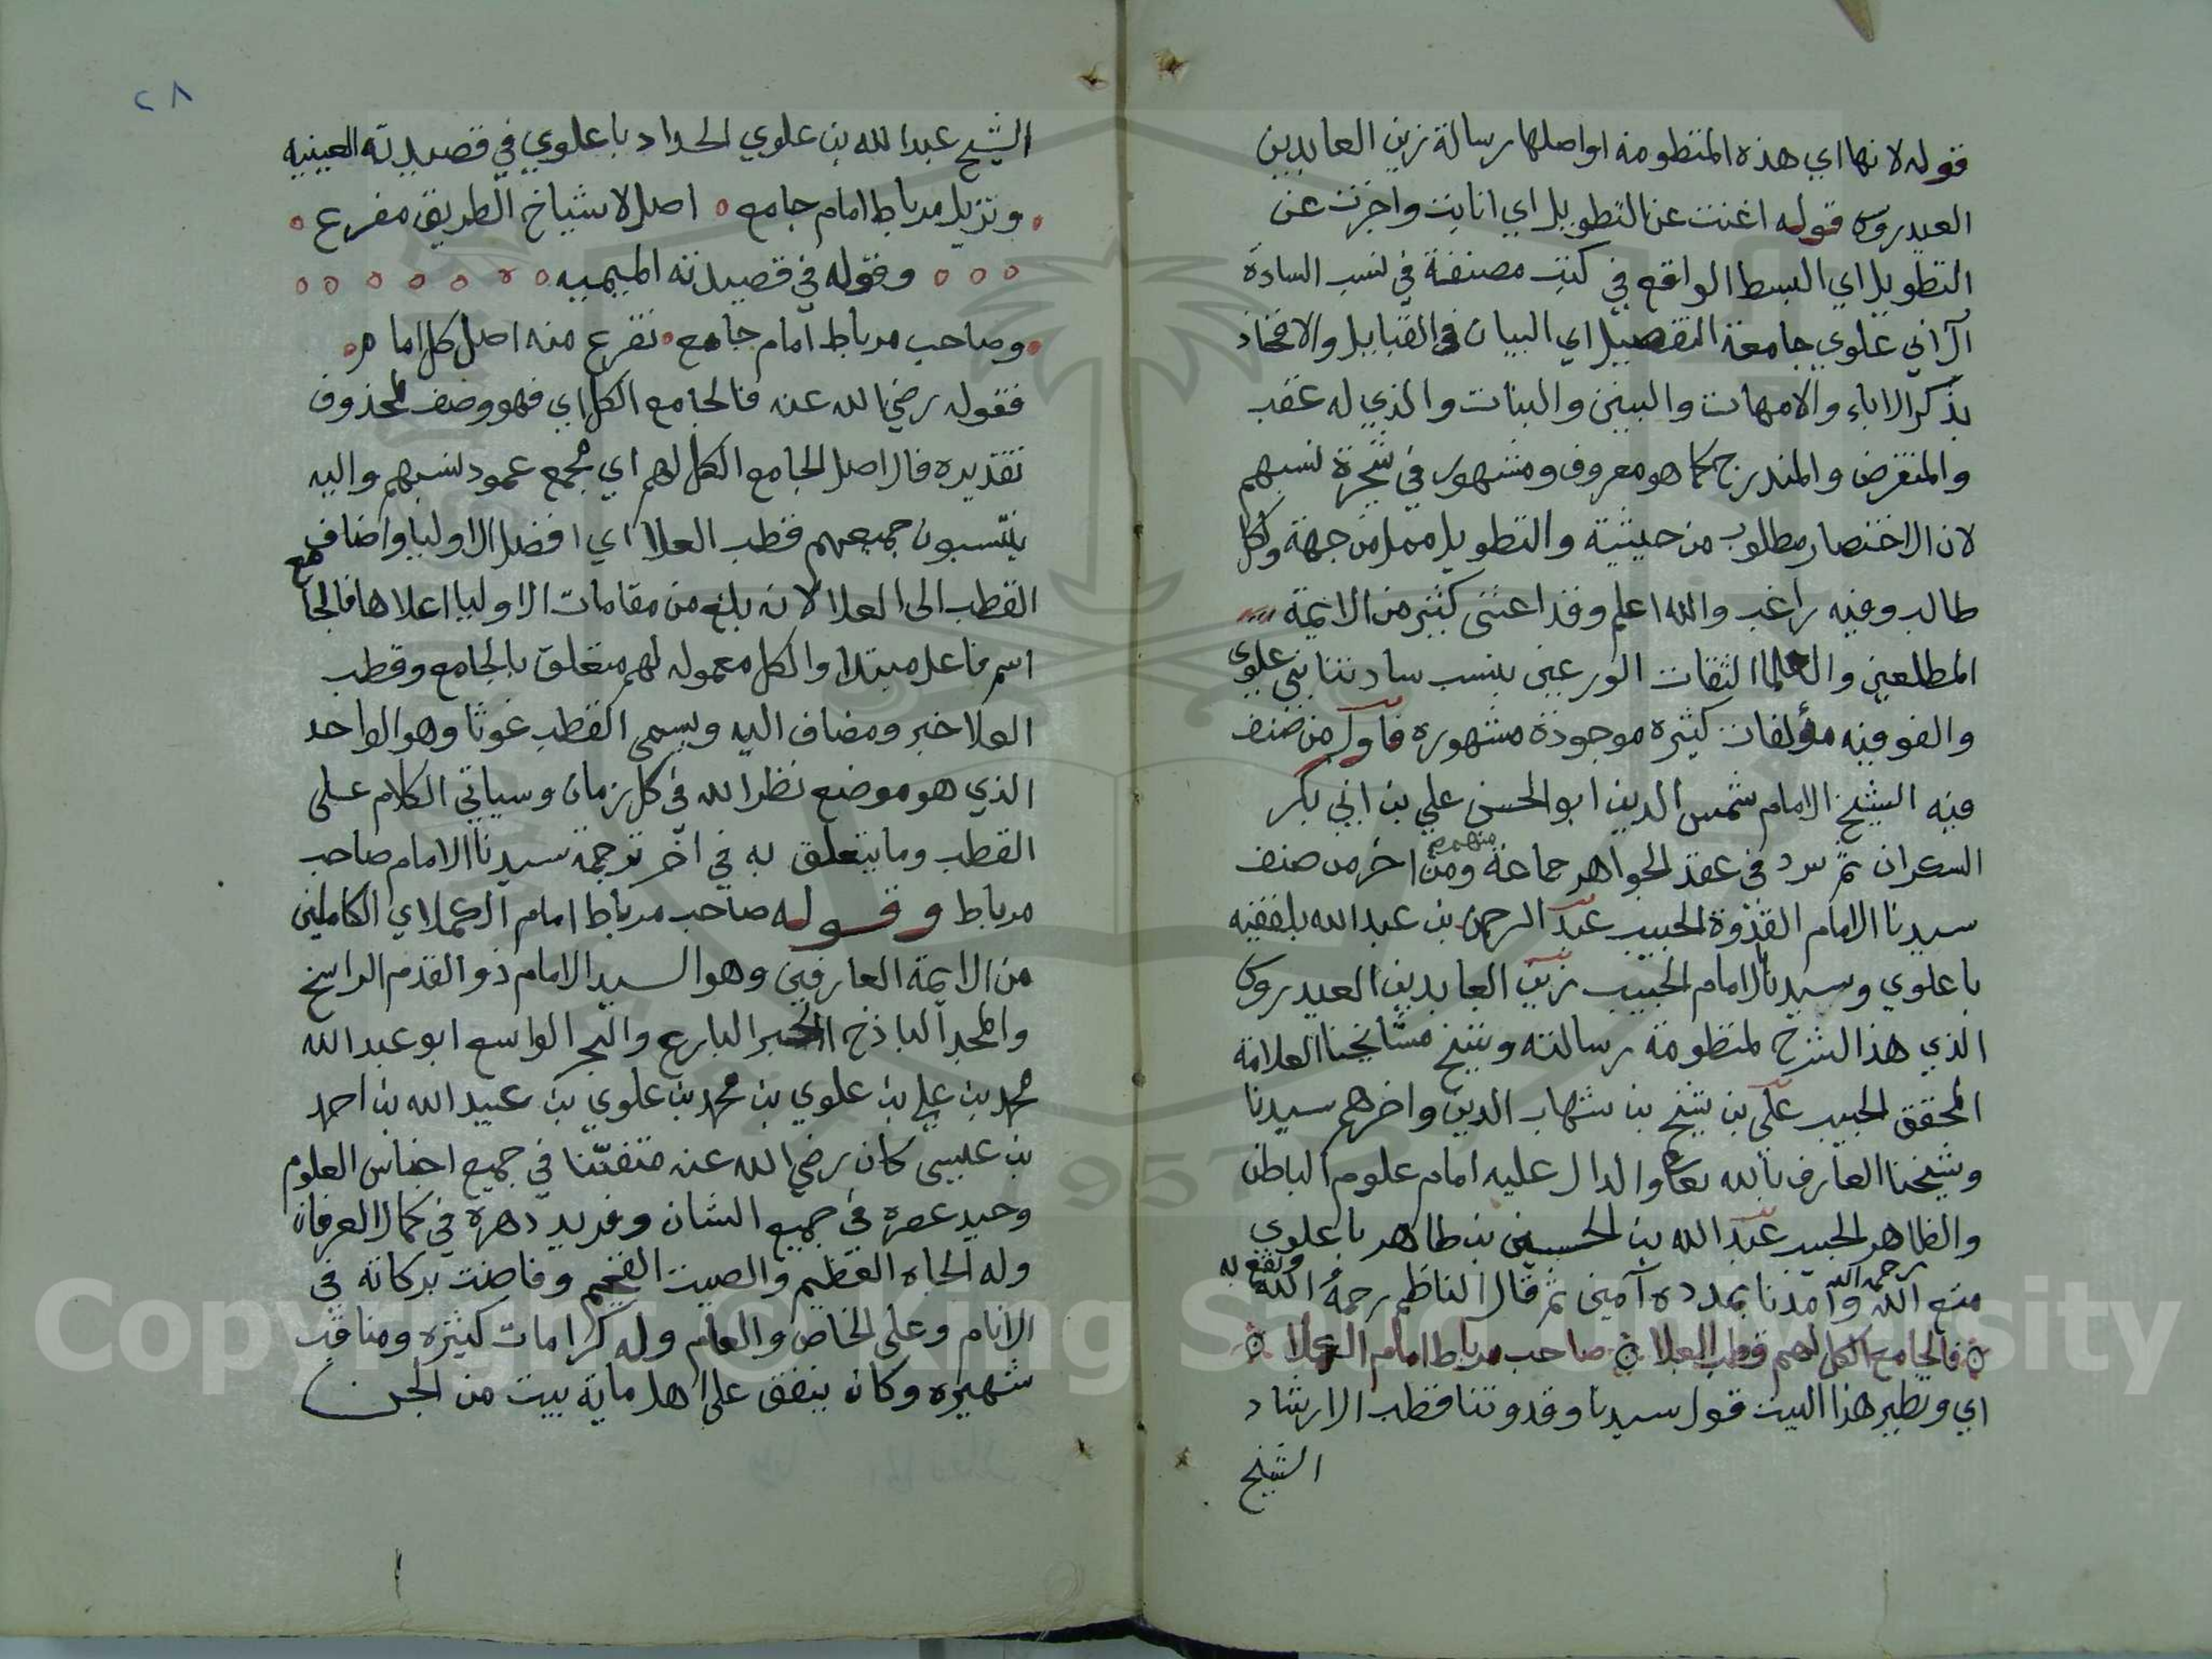 قوله لانها اي هذه المنظومة او اصلها رسالة زين العابدين
العيدروس قوله اغنت عن التطويل اي انابت واجزت عن
التطويل اي البسط الواقع في كتب مصنفة في نسب السادة
آل ابي علوي جامعة التفصيل اي البيان في القبايل والافخاذ
بذكر الاباء والامهات والبنين والبنات والذي له عقب
والمنقرض والمندرج كما هو معروف ومشهور في شجرة نسبهم
لان الاختصار مطلوب من حيثية والتطويل ممل من جهة ولكل
طالب وفيه راغب والله اعلم وقد اعتنى كثير من الائمة
المطلعين والعلما الثقات الورعين بنسب سادتنا بني علوي
والفو فيه مؤلفات كثيره موجودة مشهوره فأول من صنف
فيه الشيخ الامام شمس الدين ابو الحسن علي بن ابي بكر
السكران ثم سرد في عقد الجواهر جماعة منهم ومن اخر من صنف
سيدنا الامام القدوة الحبيب عبد الرحمن بن عبد الله بلفقيه
باعلوي وسيدنا الامام الحبيب زين العابدين العيدروس
الذي هذا الشرح لمنظومة رسالته وشيخ مشايخنا العلامة
المحقق الحبيب علي بن شيخ بن شهاب الدين واخرهم سيدنا
وشيخنا العارف بالله تعالى والدال عليه امام علوم الباطن
والظاهر الحبيب عبد الله بن الحسين بن طاهر باعلوي
رحمه الله ونفع به
متع الله وامدنا بمدده آمين ثم قال الناظم رحمه الله
فالجامع الكل لهم قطب العلا صاحب مرباط امام
اي ونظير هذا البيت قول سيدنا وقدوتنا قطب الارشاد
الشيخ
٢٨
الشيخ عبد الله بن علوي الحداد باعلوي في قصيدته العينيه
ونزيل مرباط امام جامع اصل لاشياخ الطريق مفرع
وقوله في قصيدته الميميه
وصاحب مرباط امام جامع تفرع منه اصل كل امام
فقوله رضي الله عنه فالجامع الكل اي فهو وصف لمحذوف
تقديره فالاصل الجامع الكل لهم اي مجمع عمود نسبهم واليه
ينتسبون جميعهم قطب العلا اي افضل الاوليا واضاف
القطب الى العلا لانه بلغ من مقامات الاوليا اعلاها فالجامع
اسم فاعل مبتدا والكل معموله لهم متعلق بالجامع وقطب
العلا خبر ومضاف اليه ويسمى القطب غوثا وهو الواحد
الذي هو موضع نظر الله في كل زمان وسياتي الكلام على
القطب وما يتعلق به في اخر ترجمة سيدنا الامام صاحب
مرباط وقوله صاحب مرباط امام الكملا اي الكاملين
من الايمة العارفين وهو السيد الامام ذو القدم الراسخ
والمجد الباذخ الحبر البارع والبحر الواسع ابو عبد الله
محمد بن علي بن علوي بن محمد بن علوي بن عبيد الله بن احمد
بن عيسى كان رضي الله عنه متفنّنا في جميع اجناس العلوم
وحيد عصره في جميع الشان وفريد دهره في كمال العرفان
وله الجاه العظيم والصيت الفخيم وفاضت بركاته في
الانام وعلى الخاص والعام وله كرامات كثيره ومناقب
شهيره وكان ينفق على اهل ماية بيت من الجن
Copyright © King Saud University
1957